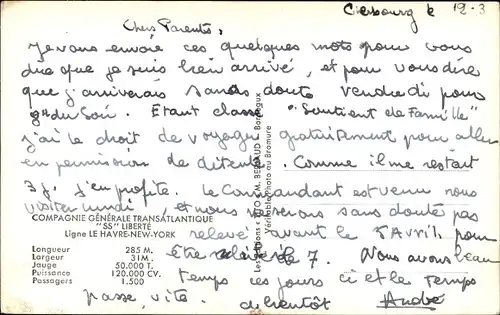 Cherbourg le 12-3
Chers Parents,
Je vous envoie ces quelques mots pour vous
dire que je suis bien arrivé, et pour vous dire
que j'arriverais sans doute vendredi pour
du soir. Etant classé "Soutient de Famille"
j'ai le droit de voyager gratuitement pour aller
en permission de détente. Comme il me restait
3 j. j'en profite. Le Commandant est venu nous
visiter lundi et nous ne serons sans doute pas
relevé avant le 5 Avril, pour
être relevé le 7. Nous avons beau
temps ces jours ci et le temps
passe vite. a bientôt André
COMPAGNIE GÉNÉRALE TRANSATLANTIQUE
"SS" LIBERTÉ
Ligne LE HAVRE-NEW-YORK
Longueur 285 M.
Largeur 31 M.
Jauge 50.000 T.
Puissance 120.000 CV.
Passagers 1.500
Véritable Photo au Bromure